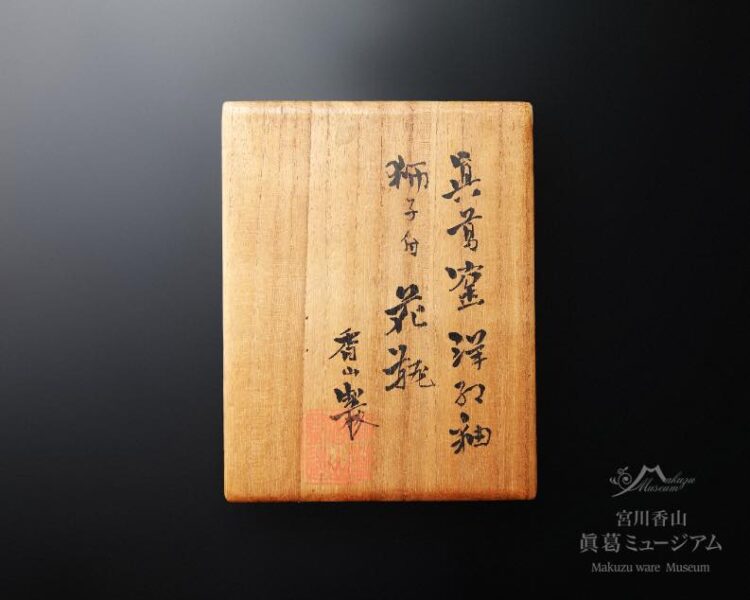 眞葛窯洋紅釉
獅子付 花瓶
香山製
Makuzu
Museum
宮川香山
眞葛ミュージアム
Makuzu ware Museum